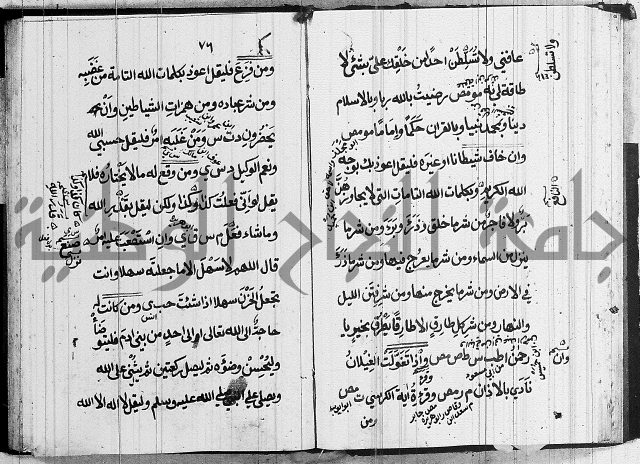 عافني ولا تسلطن احدا من خلقك علي بشئ لا
طاقة لي به مو مص رضيت بالله ربا وبالاسلام
دينا وبمحمد نبيا وبالقران حكما واماما مو مص
وان خاف شيطانا او غيره فليقل اعوذ بك بوجه
الله الكريم وبكلمات الله التامات التي لا يجاوزهن
بر ولا فاجر من شر ما خلق وذرأ وبرأ ومن شر ما
ينزل من السماء ومن شر ما يعرج فيها ومن شر ما ذرأ
في الارض ومن شر ما يخرج منها ومن شر فتن الليل
والنهار ومن شر كل طارق الا طارقا يطرق بخير يا
رحمن اطب س ط مص واذا تغولت الغيلان
نادي بالاذان م ر مص وقرءة اية الكرسي ت مص
ومن
ولا تسلطن
٧٦
ومن فزع فليقل اعوذ بكلمات الله التامة من غضبه
ومن شر عباده ومن همزات الشياطين وان
يحضرون د ت س ومن غلبه امر فليقل حسبي الله
ونعم الوكيل د س ي ومن وقع له ما لا يختاره فلا
يقل لو اني فعلت كذا وكذا ولكن ليقل بقدر الله
وما شاء فعل م س ق ي وان استصعب عليه شئ
قال اللهم لا سهل الا ما جعلته سهلا وانت
تجعل الحزن سهلا اذا شئت حب ي ومن كانت له
حاجة الى الله تعالى او الى احد من بني ادم فليتوضأ
وليحسن وضوءه ثم ليصل ركعتين ثم يثني على الله
ويصلي على النبي صلى الله عليه وسلم وليقل لا اله الا الله
جامعة النجاح الوطنية